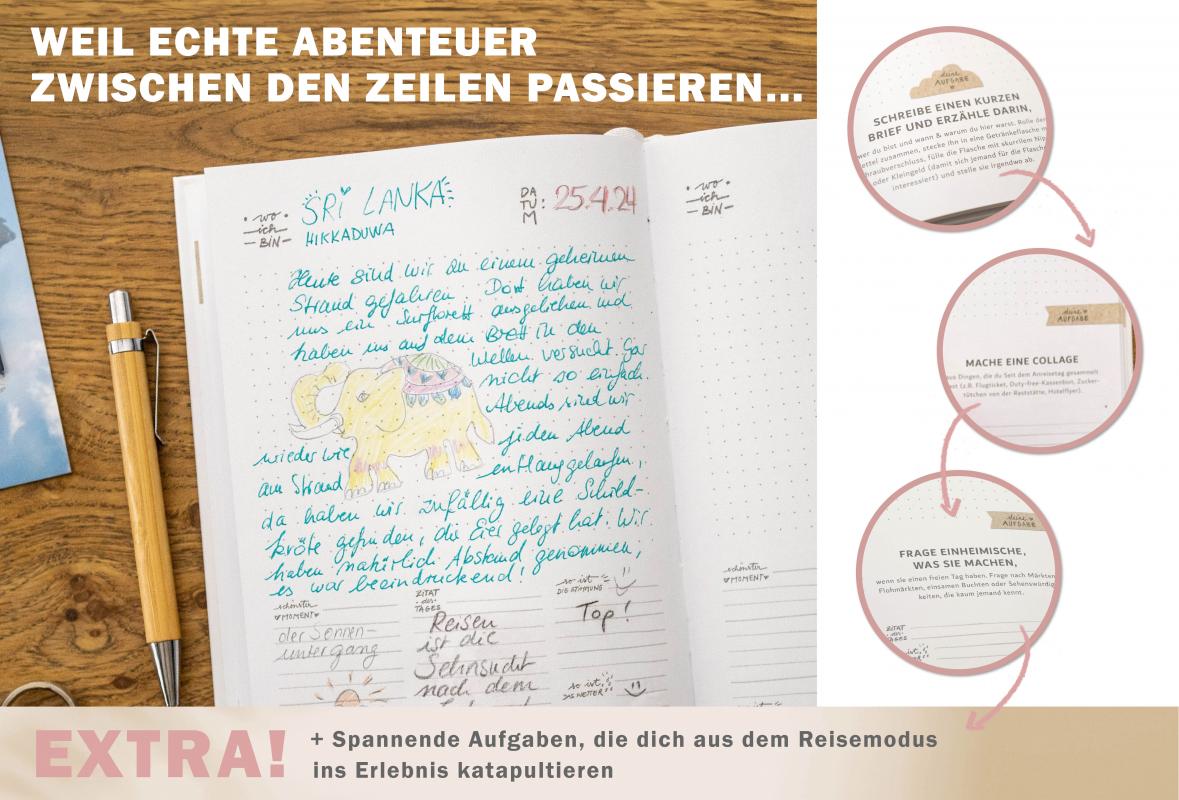 WEIL ECHTE ABENTEUER
ZWISCHEN DEN ZEILEN PASSIEREN...
• wo •
ich
— BIN —
SRI LANKA
HIKKADUWA
DA
TU :
M
25.4.24
Heute sind wir an einem geheimen
Strand gefahren. Dort haben wir
uns ein Surfbrett ausgeliehen und
haben uns auf dem Brett in den
Wellen versucht. Gar
nicht so einfach.
Abends sind wir
wieder wie jeden Abend
am Strand entlang gelaufen,
da haben wir zufällig eine Schild-
kröte gefunden, die Eier gelegt hat. Wir
haben natürlich Abstand genommen,
es war beeindruckend!
schönster
♥MOMENT♥
der Sonnen-
untergang
ZITAT
• des •
TAGES
Reisen
ist die
Sehnsucht
nach dem
so ist
DIE STIMMUNG
Top!
so ist
DAS WETTER
• wo •
ich
— BIN —
schönster
♥MOMENT♥
deine
AUFGABE
SCHREIBE EINEN KURZEN
BRIEF UND ERZÄHLE DARIN,
wer du bist und wann & warum du hier warst. Rolle den
Zettel zusammen, stecke ihn in eine Getränkeflasche m
hraubverschluss, fülle die Flasche mit skurrilem Nip
oder Kleingeld (damit sich jemand für die Flasche
interessiert) und stelle sie irgendwo ab.
deine
AUFGABE
MACHE EINE COLLAGE
aus Dingen, die du Seit dem Anreisetag gesammelt
hast (z.B. Flugticket, Duty-free-Kassenbon, Zucker-
tütchen von der Raststätte, Hotelflyer).
deine
AUFGABE
FRAGE EINHEIMISCHE,
WAS SIE MACHEN,
wenn sie einen freien Tag haben. Frage nach Märkten
Flohmärkten, einsamen Buchten oder Sehenswürdig
keiten, die kaum jemand kennt.
ZITAT
• des •
TAGES
so ist
EXTRA!
+ Spannende Aufgaben, die dich aus dem Reisemodus
ins Erlebnis katapultieren